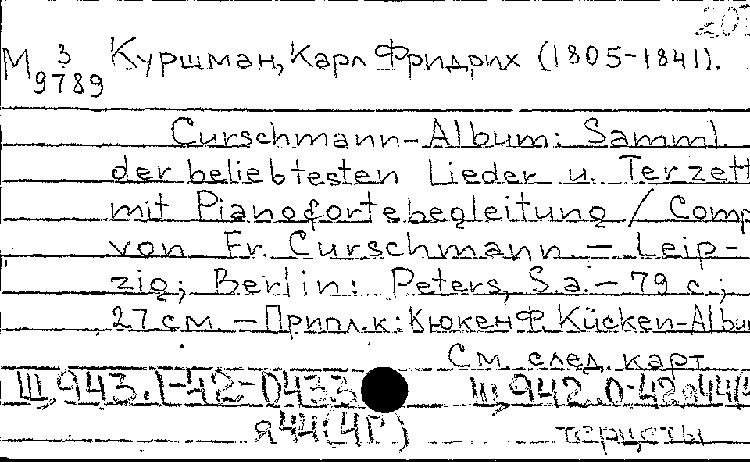 203
М 3/9789 Куршман, Карл Фридрих (1805-1841).
Curschmann-Album: Samml.
der beliebtesten Lieder u. Terzett
mit Pianofortebegleitung / Comp
von Fr. Curschmann. - Leip-
zig; Berlin: Peters, S.a. - 79 с.;
27 см. - Припл. к: Кюкен Ф. Kücken-Albu
См. след. карт
Щ943.1-42-0433 Щ942.0-42я44(4
я44(4Г) терцеты